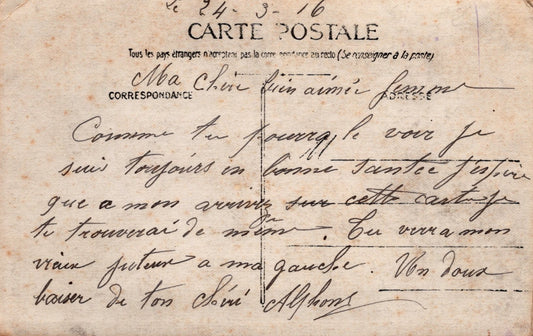 le 24-3-16
CARTE POSTALE
Tous les pays étrangers n'acceptent pas la correspondance au recto (Se renseigner à la poste)
Ma chère bien aimée
CORRESPONDANCE ADRESSE
Comme tu pourra le voir je
suis toujours en bonne santée j'espère
que a mon arrivez sur cette carte je
te trouverai de même. Tu verra mon
vieux a ma gauche. Un doux
baiser de ton chéri Alphons